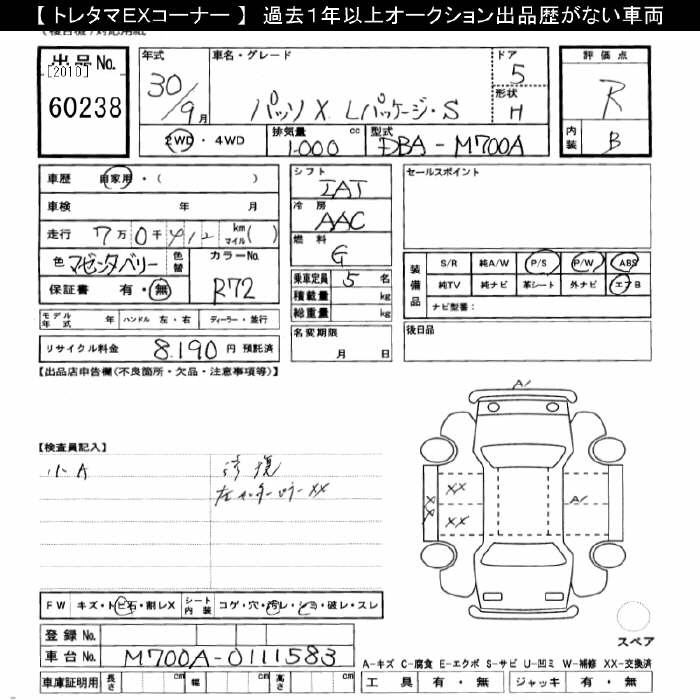 【トレタマEXコーナー】 過去1年以上オークション出品歴がない車両
出品No.
[2010]
60238
年式
30/9月
車名・グレード
パッソ X Lパッケージ・S
ドア
5
形状
H
評価点
R
内装
B
2WD・4WD
排気量
1.000 cc
型式
DBA-M700A
車歴 自家用・( )
車検 年 月
走行 7万0千412 km マイル( )
色 マゼンタベリー 色替
カラーNo.
R72
保証書 有・無
シフト
IAT
冷房
AAC
燃料
G
乗車定員 5 名
積載量 kg
総重量 kg
セールスポイント
装備品
S/R 純A/W P/S P/W ABS
純TV 純ナビ 革シート 外ナビ エアB
ナビ型番:
モデル年式 年 ハンドル 左・右 ディーラー・並行
リサイクル料金 8.190 円 預託済
名変期限
月 日
後日品
【出品店申告欄(不良箇所・欠品・注意事項等)】
A1
【検査員記入】
小A
修復
左センターピラーXX
XX
XX
XX
A1
FW キズ・トビ石・割レX シート内装 コゲ・穴・汚レ・シミ・破レ・スレ
登録No.
車台No. M700A-0111583
車庫証明用 長さ cm 幅 cm 高さ cm
スペア
A-キズ C-腐食 E-エクボ S-サビ U-凹ミ W-補修 XX-交換済
工具 有・無 ジャッキ 有・無